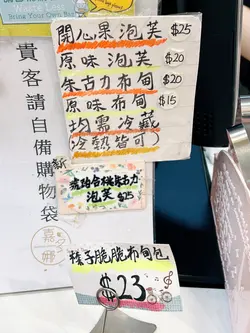 Waste Less
開心果泡芙 $25
原味泡芙 $20
朱古力布甸 $20
原味布甸 $15
均需冷藏
冷熱皆可
貴客請自備購物袋
嘉娜
新
琥珀合桃朱古力
泡芙 $25
榛子脆脆布甸包
$23